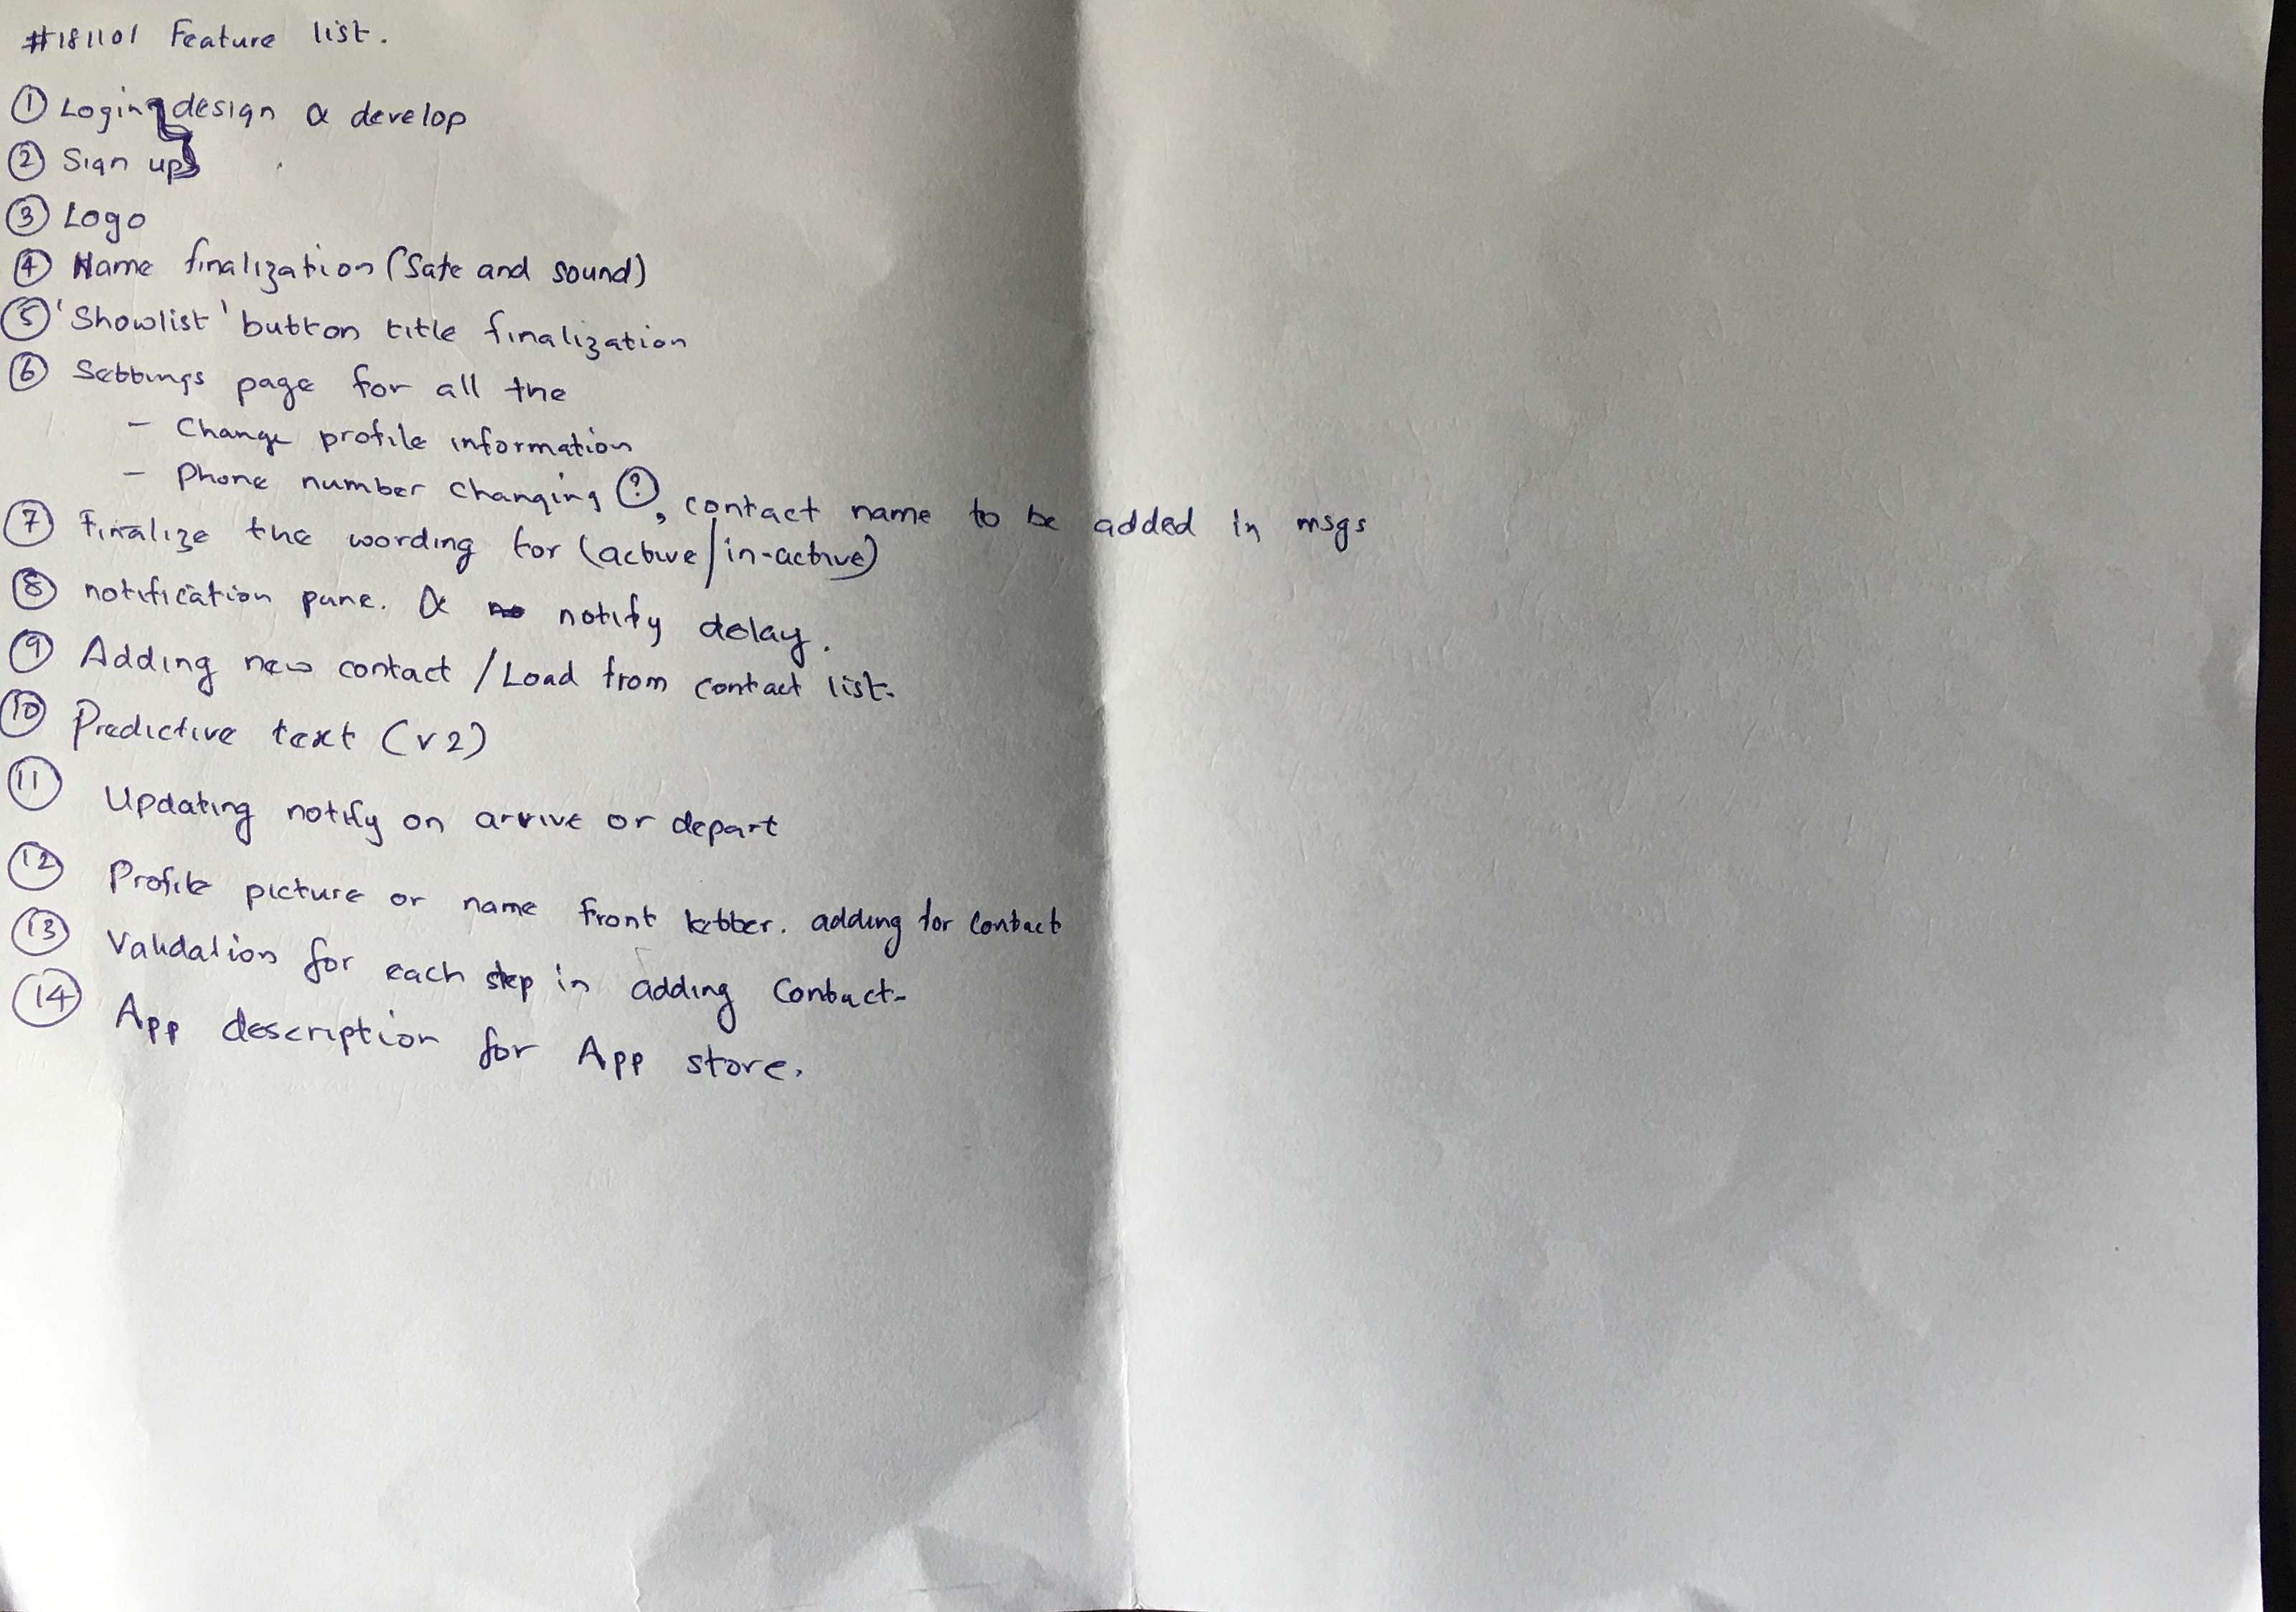 #181101 Feature list.
① Login design & develop
② Sign up
③ Logo
④ Name finalization (Safe and sound)
⑤ 'Showlist' button title finalization
⑥ Settings page for all the
- Change profile information
- Phone number changing ?
⑦ Finalize the wording for (active/in-active), contact name to be added in msgs
⑧ notification pane. & notify delay.
⑨ Adding new contact / Load from contact list.
⑩ Predictive text (v2)
⑪ Updating notify on arrive or depart
⑫ Profile picture or name front letter. adding for contact
⑬ Validation for each step in adding contact.
⑭ App description for App store.